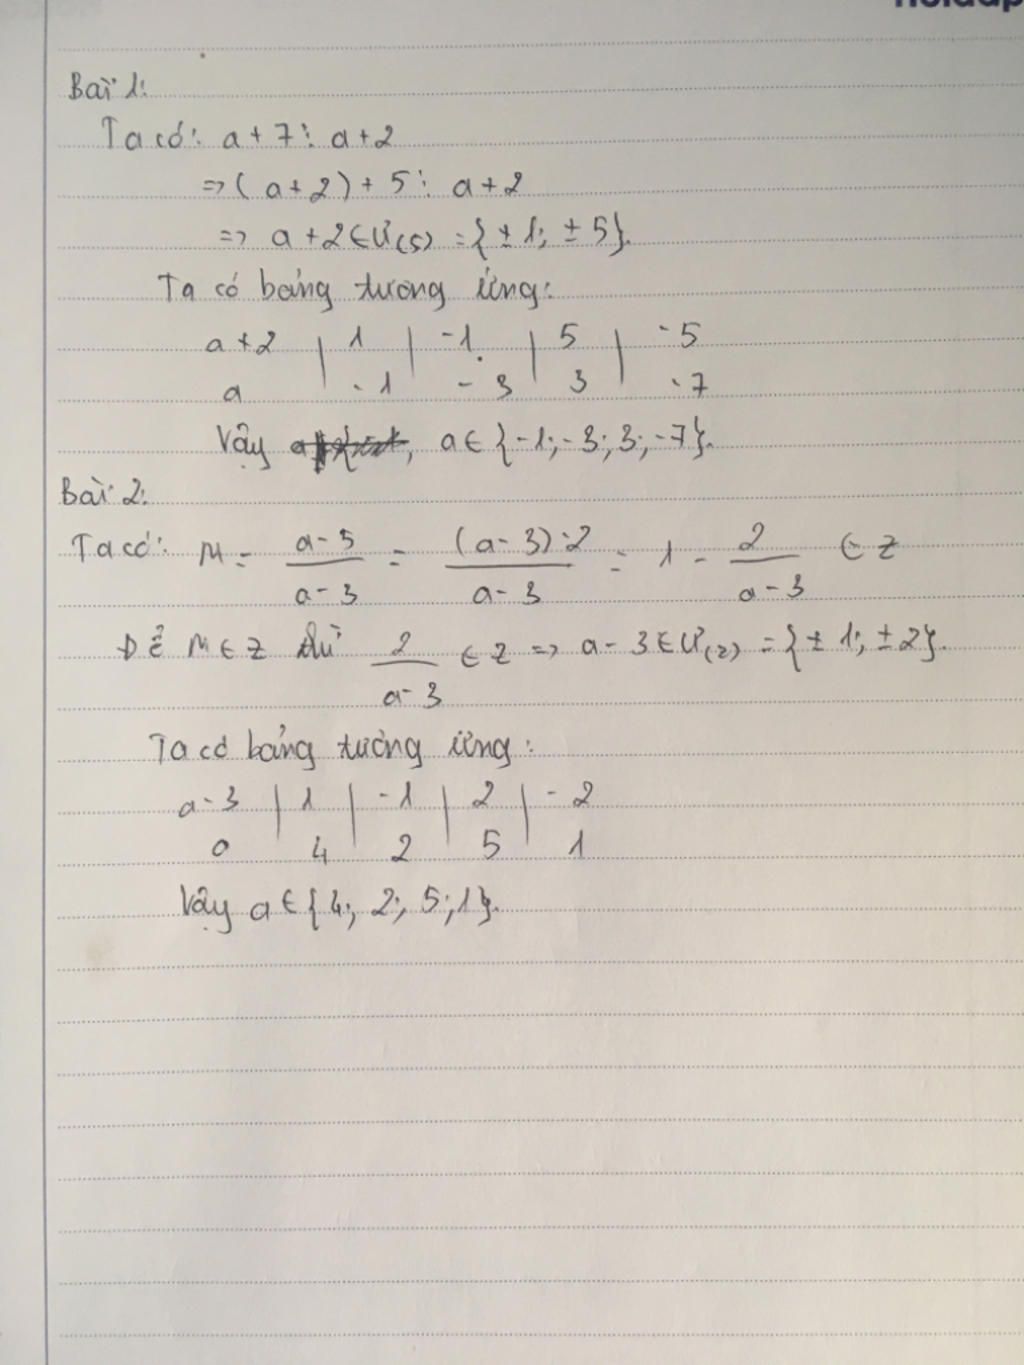 Bài 1:
Ta có: a + 7 ⋮ a + 2
=> (a + 2) + 5 ⋮ a + 2
=> a + 2 ∈ Ư(5) = {± 1; ± 5}.
Ta có bảng tương ứng:
a + 2 | 1 | -1 | 5 | -5
a | -1 | -3 | 3 | -7
Vậy a ∈ {-1; -3; 3; -7}.
Bài 2:
Ta có: M = \frac{a-5}{a-3} = \frac{(a-3)-2}{a-3} = 1 - \frac{2}{a-3} ∈ Z
Để M ∈ Z thì \frac{2}{a-3} ∈ Z => a - 3 ∈ Ư(2) = {± 1; ± 2}.
Ta có bảng tương ứng:
a - 3 | 1 | -1 | 2 | -2
a | 4 | 2 | 5 | 1
Vậy a ∈ {4; 2; 5; 1}.